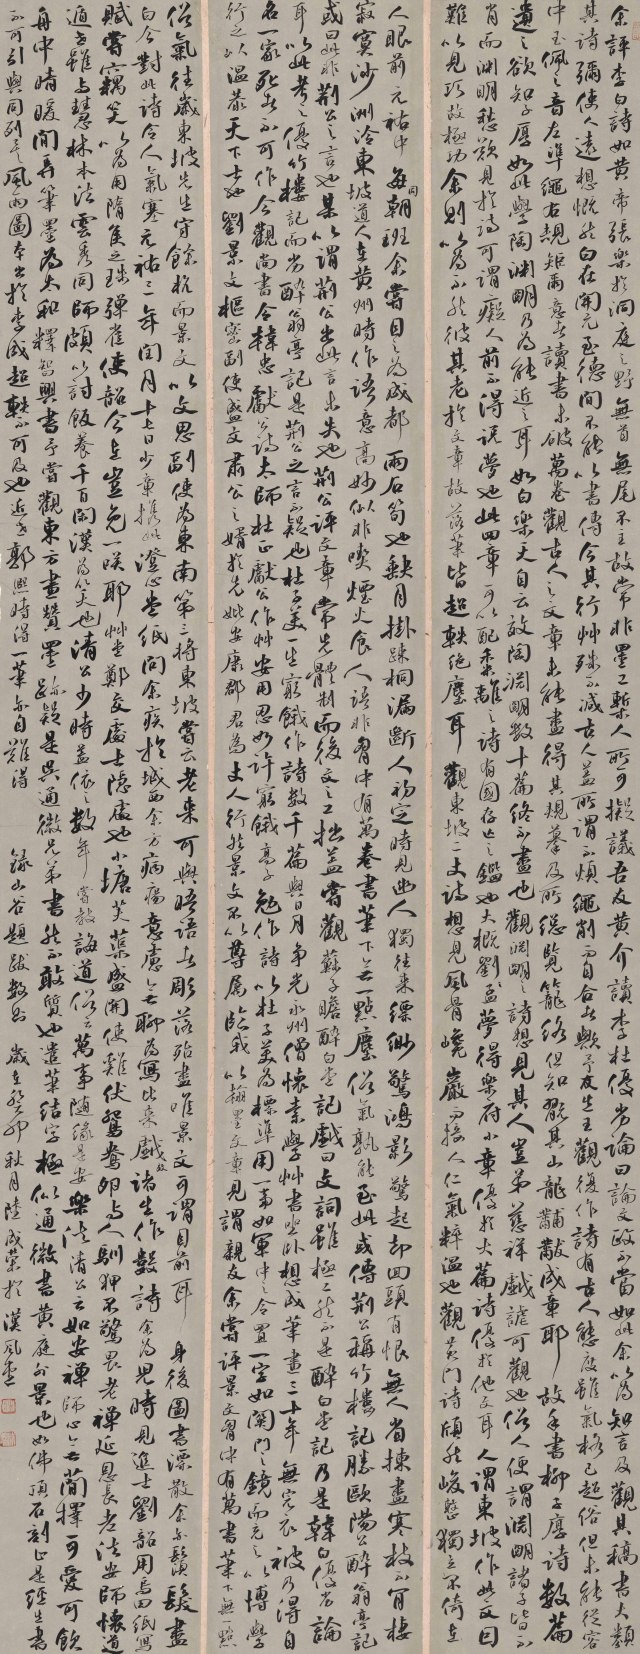 余評李白詩如黃帝張樂於洞庭之野無首無尾不主故常非墨工槧人所可擬議吾友黃介讀李杜優劣論曰論文政不當如此余以為知言及觀其稿書大類
其詩彌使人遠想慨然白在開元至德間不能以書傳今其行草殊不減古人蓋所謂不煩繩削而自合者歟予友生王觀復作詩有古人態度雖氣格已超俗但未能從容
中玉佩之音左準繩右規矩爾意者讀書未破萬卷觀古人之文章未能盡得其規摹及所總覽籠絡但知翫其山龍黼黻成章耶故手書柳子厚詩數篇
遺之欲知子厚如此學陶淵明乃為能近之耳如白樂天自云效陶淵明數十篇終不盡也觀淵明之詩想見其人豈弟慈祥戲謔可觀也俗人便謂淵明諸子皆不
肖而淵明愁歎見於詩可謂癡人前不得說夢也此四章可以配黍離之詩有國存亡之鑑也大概劉夢得樂府小章優於大篇詩優於他文耳人謂東坡作此文因
難以見巧故極功余則以為不然彼其老於文章故落筆皆超軼絕塵耳觀東坡二丈詩想見風骨巉巖而接人仁氣粹溫也觀黃門詩頎然峻整獨立不倚在
人眼前元祐中每同朝班余嘗目之為成都兩石筍也缺月掛疎桐漏斷人初定時見幽人獨往來縹緲驚鴻影驚起却回頭有恨無人省揀盡寒枝不肯棲
寂寞沙洲冷東坡道人在黃州時作語意高妙似非喫煙火食人語非胸中有萬卷書筆下無一點塵俗氣孰能至此或傳荊公稱竹樓記勝歐陽公醉翁亭記
或曰此非荊公之言也某以謂荊公出此言未失也荊公評文章常先體制而後文之工拙蓋嘗觀蘇子瞻醉白堂記戲曰文詞雖極工然不是醉白堂記乃是韓白優劣論
耳以此考之優竹樓記而劣醉翁亭記是荊公之言不疑也杜子美一生窮餓作詩數千篇與日月爭光永州僧懷素學草書坐臥想成筆畫三十年無完衣被乃得自
名一家死者不可作今觀尚書令韓忠獻公詩太師杜正獻公作草安用思如許窮餓高子勉作詩以杜子美為標準用一事如軍中之令置一字如關門之鍵而充之以博學
行之以溫恭天下士也劉景文樞密副使盛文肅公之婿於先妣安康郡君為丈人行然景文不以尊屬臨我以翰墨文章見謂親友余嘗評景文胸中有萬書筆下無一點
俗氣往歲東坡先生守餘杭而景文以文思副使為東南第三將東坡嘗云老來可與晤語者彫落殆盡唯景文可謂目前耳身後圖書漂散余亦鬢髮盡
白今對此詩令人氣塞元祐二年閏月十七日少章攜此澄心堂紙問余疾於城西余方病瘍意慮無聊為寫比來戲效諸生作數詩余為兒時見進士劉韶用此紙寫
賦嘗竊笑以為用隋侯之珠彈雀使韶今在豈免一咲耶草堂鄭交處士隱處也小塘芙蕖盛開使雞伏鴛鴦卵与人馴狎不驚畏老禪延恩長老法安師懷道
遁世雖与慧林本法雲秀同師頗以討飯養千百閑漢為笑也清公少時蓋依之數年嘗教誨道俗云萬事隨緣是安樂法清公云如安禪師心無簡擇可愛可飲
舟中晴暖閒弄筆墨為太和釋智興書予嘗觀東方畫贊墨跡疑是吳通微兄弟書然不敢質也遣筆結字極似通微書黃庭外景也如佛頂石刻止是經生書
不可引與同列矣風雨圖本出於李成超軼不可及也近世郭熙時得一筆亦自難得 錄山谷題跋數則 歲在癸卯秋月陸成榮於漢風堂